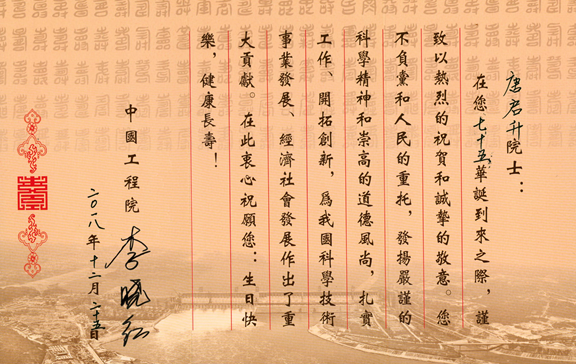 唐君升院士：
在您七十五華誕到來之際，謹
致以熱烈的祝賀和誠摯的敬意。您
不負黨和人民的重托，發揚嚴謹的
科學精神和崇高的道德風尚，扎實
工作、開拓創新，爲我國科學技術
事業發展、經濟社會發展作出了重
大貢獻。在此衷心祝願您：生日快
樂，健康長壽！
中國工程院 李曉紅
二〇一八年十二月二十五日